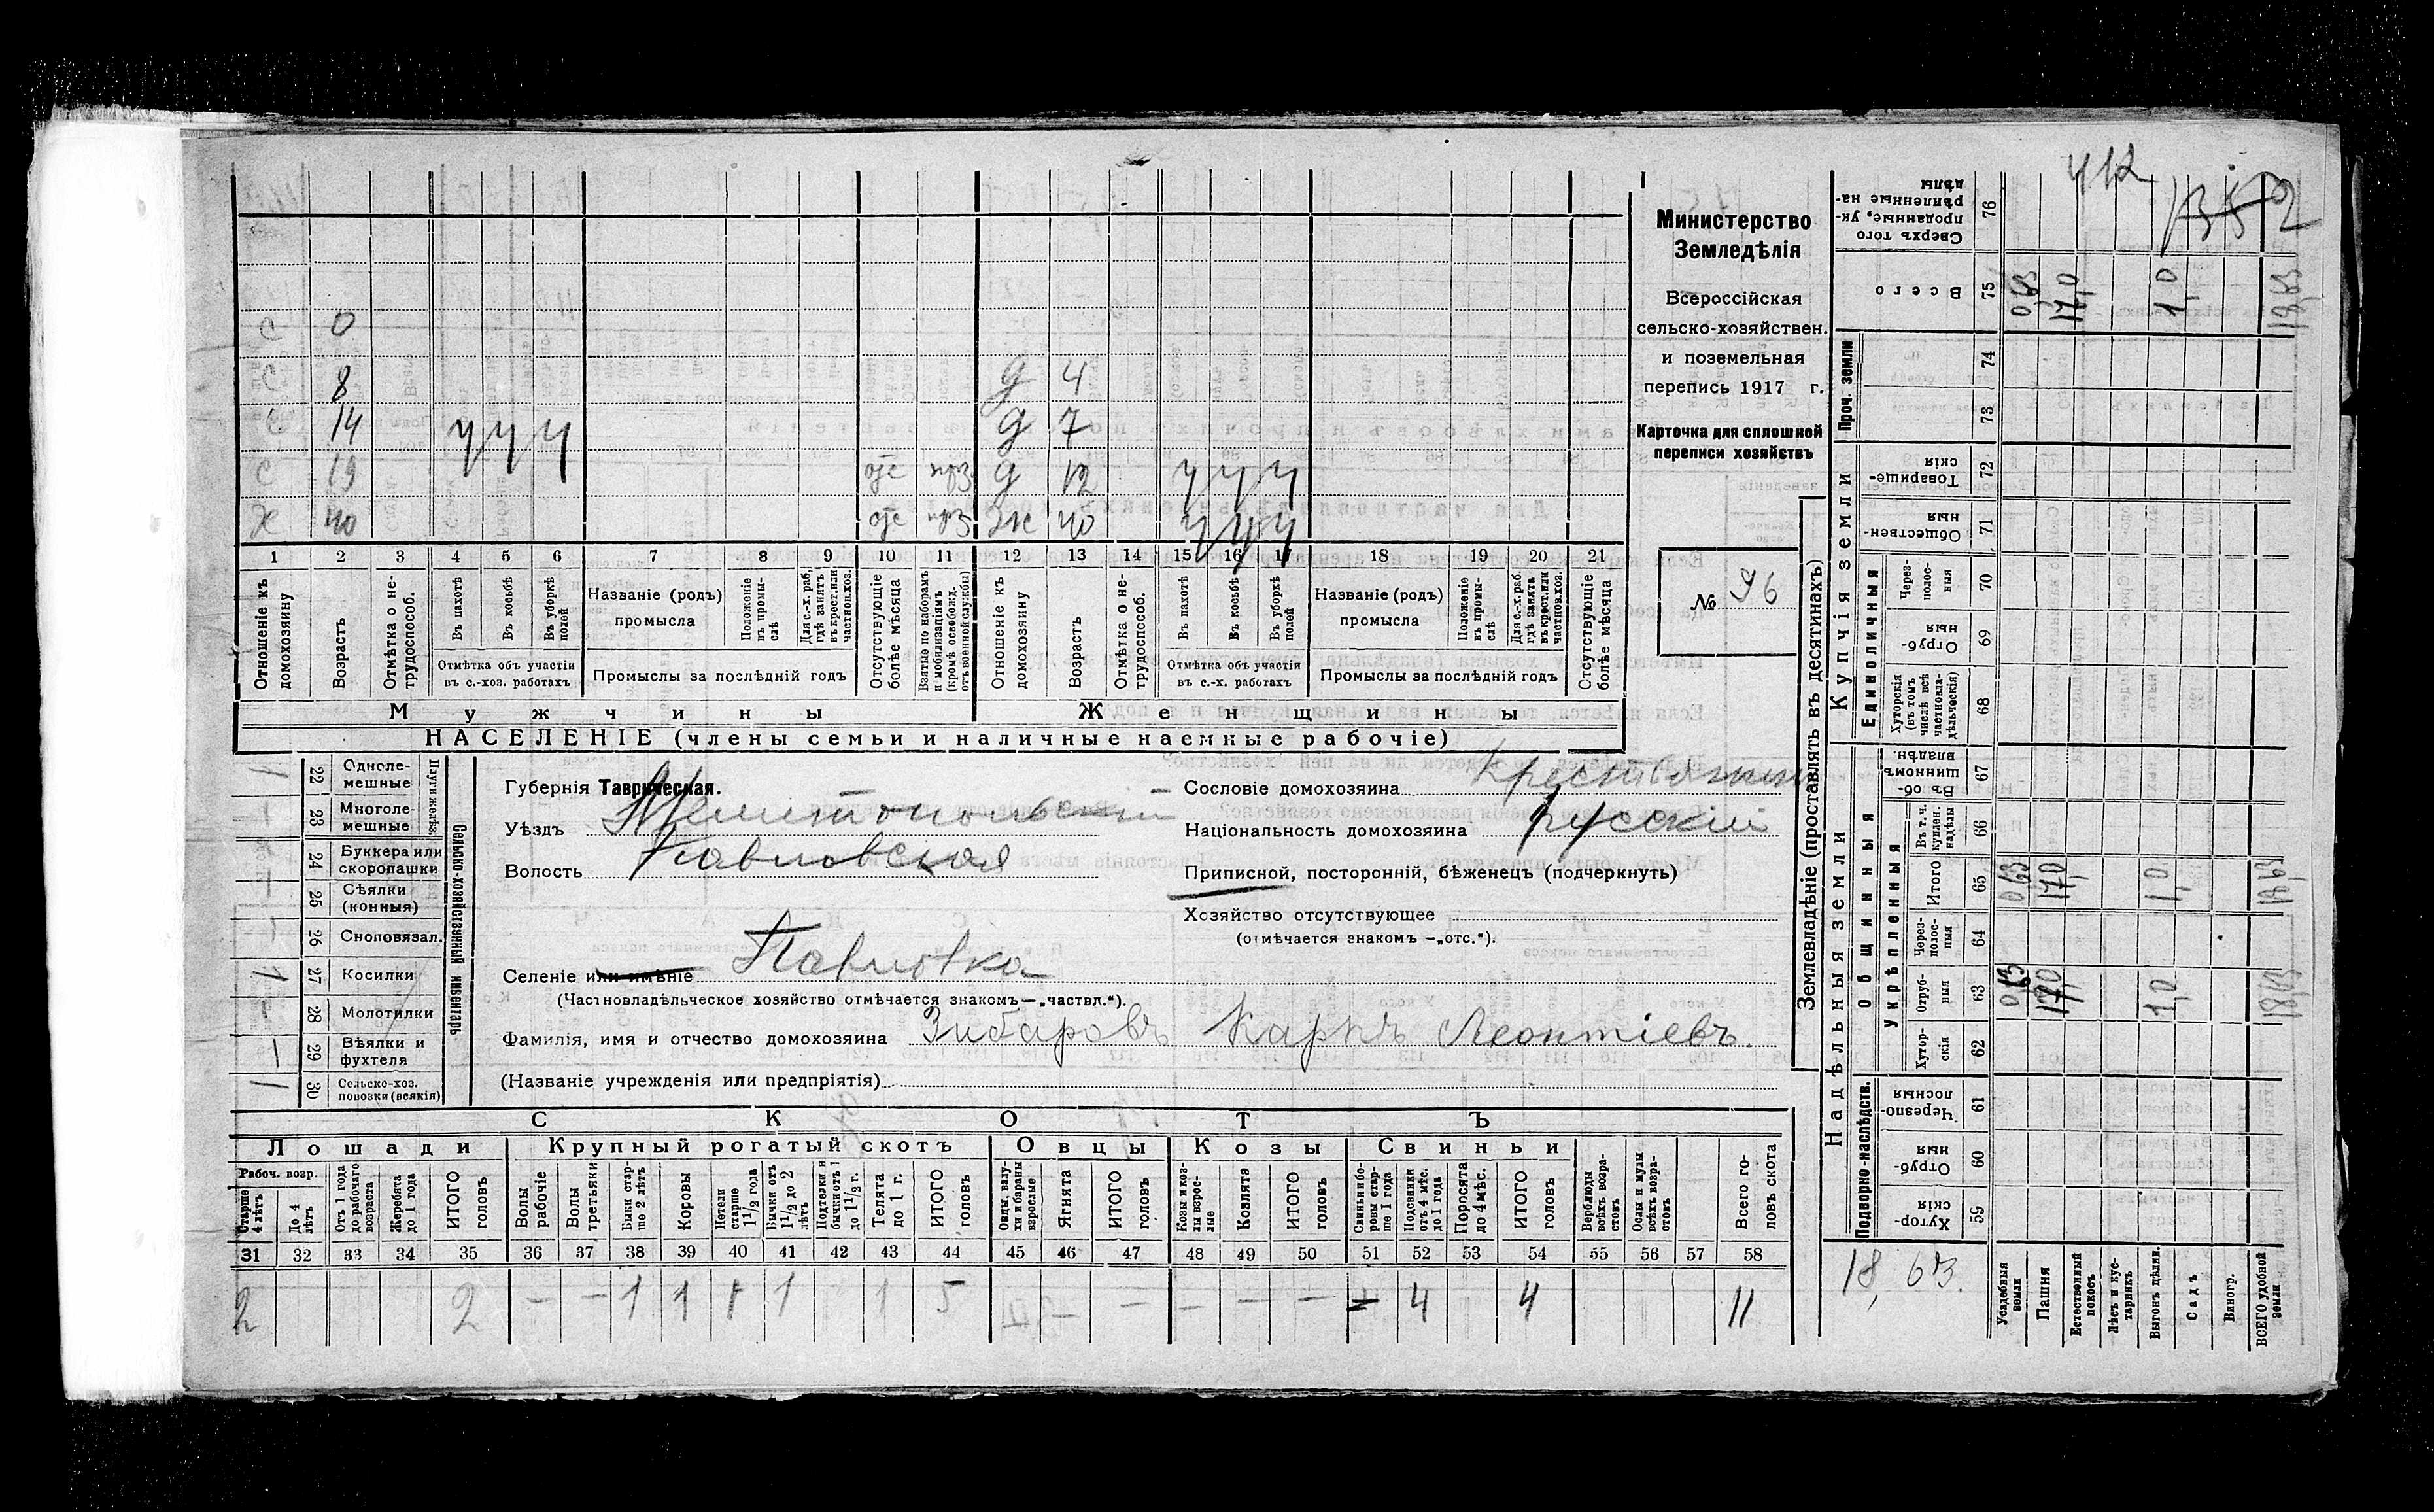 412
1352
С 0
С 8 д 4
С 14 ч ч ч д 7
С 19 отс прз д 12 ч ч ч
Х 40 отс прз Ж 40 ч ч ч
1 2 3 4 5 6 7 8 9 10 11 12 13 14 15 16 17 18 19 20 21
Отношеніе къ домохозяину
Возрастъ
Отмѣтка о нетрудоспособ.
Въ пахотѣ
Въ косьбѣ
Въ уборкѣ полей
Отмѣтка объ участіи въ с.-хоз. работахъ
Названіе (родъ) промысла
Положеніе въ промыслѣ
Для с.-х. раб. гдѣ занятъ въ крест. или частнов. хоз.
Промыслы за послѣдній годъ
Отсутствующіе болѣе мѣсяца
Взятые по наборамъ и мобилизаціямъ (кромѣ освобожд. отъ военной службы)
Отношеніе къ домохозяину
Возрастъ
Отмѣтка о нетрудоспособ.
Въ пахотѣ
Въ косьбѣ
Въ уборкѣ полей
Отмѣтка объ участіи въ с.-х. работахъ
Названіе (родъ) промысла
Положеніе въ промыслѣ
Для с.-х. раб. гдѣ занята въ крест. или частнов. хоз.
Промыслы за послѣдній годъ
Отсутствующіе болѣе мѣсяца
Мужчины Женщины
НАСЕЛЕНІЕ (члены семьи и наличные наемные рабочіе)
Министерство
Земледѣлія
Всероссійская
сельско-хозяйствен.
и поземельная
перепись 1917 г.
Карточка для сплошной
переписи хозяйствъ
№ 96
Сельско-хозяйственный инвентарь
Плуги желѣз.
22 Однолемешные
23 Многолемешные
24 Буккера или скоропашки
25 Сѣялки (конныя)
26 Сноповязал.
27 Косилки 1
28 Молотилки
29 Вѣялки и фухтеля
30 Сельско-хоз. повозки (всякія) 1
Губернія Таврическая.
Уѣздъ Мелитопольскій
Волость Павловская
Селеніе или имѣніе Павловка
(Частновладѣльческое хозяйство отмѣчается знакомъ—„частвл.“).
Фамилія, имя и отчество домохозяина Зибаровъ Карпъ Леонтіевъ.
(Названіе учрежденія или предпріятія)
Сословіе домохозяина Крестьянин
Національность домохозяина русскій
Приписной, посторонній, бѣженец (подчеркнуть)
Хозяйство отсутствующее
(отмѣчается знакомъ —„отс.“).
СКОТЪ
Лошади Крупный рогатый скотъ Овцы Козы Свиньи
Рабоч. возр.
Старше 4 лѣтъ
До 4 лѣтъ
Отъ 1 года до рабочаго возраста
Жеребята до 1 года
ИТОГО головъ
Волы рабочіе
Волы третьяки
Быки старше 2 лѣтъ
Коровы
Нетели старше 1 1/2 года
Бычки отъ 1 1/2 до 2 лѣтъ
Подтелки и бычки отъ 1 до 1 1/2 г.
Телята до 1 г.
ИТОГО головъ
Овцы, валухи и бараны взрослые
Ягнята
ИТОГО головъ
Козы и козлы взрослые
Козлята
ИТОГО головъ
Свиньи и боровы старше 1 года
Подсвинки отъ 4 мѣс. до 1 года
Поросята до 4 мѣс.
ИТОГО головъ
Верблюды всѣхъ возрастовъ
Ослы и мулы всѣхъ возрастовъ
Всего головъ скота
31 32 33 34 35 36 37 38 39 40 41 42 43 44 45 46 47 48 49 50 51 52 53 54 55 56 57 58
2 2 – – 1 1 1 1 1 5 – – – – – – 4 4 11
Землевладѣніе (проставлять въ десятинахъ)
Купчія земли
Надѣльныя земли
Проч. земли
Единоличныя
Общинныя
Укрѣпленныя
Подворно-наслѣдств.
Сверхъ того проданные, укрѣпленные надѣлы 76
Всего 75 0,63 17,0 1,0 18,63
74
73
Товарищескія 72
Общественныя 71
Черезполосныя 70
Отрубныя 69
Хуторскія (въ томъ числѣ всѣ частновладѣльческія) 68
Въ общинномъ владѣн. 67
Въ т. ч. куплен. надѣлы 66
Итого 65 0,63 17,0 1,0 18,63
Черезполосныя 64
Отрубныя 63 0,63 17,0 1,0 18,63
Хуторскія 62
Черезполосныя 61
Отрубныя 60
Хуторскія 59
18,63.
Усадебныя земли
Пашня
Естественный покосъ
Лѣсъ и кустарникъ
Выгонъ дѣлин.
Садъ
Виногр.
ВСЕГО удобной земли